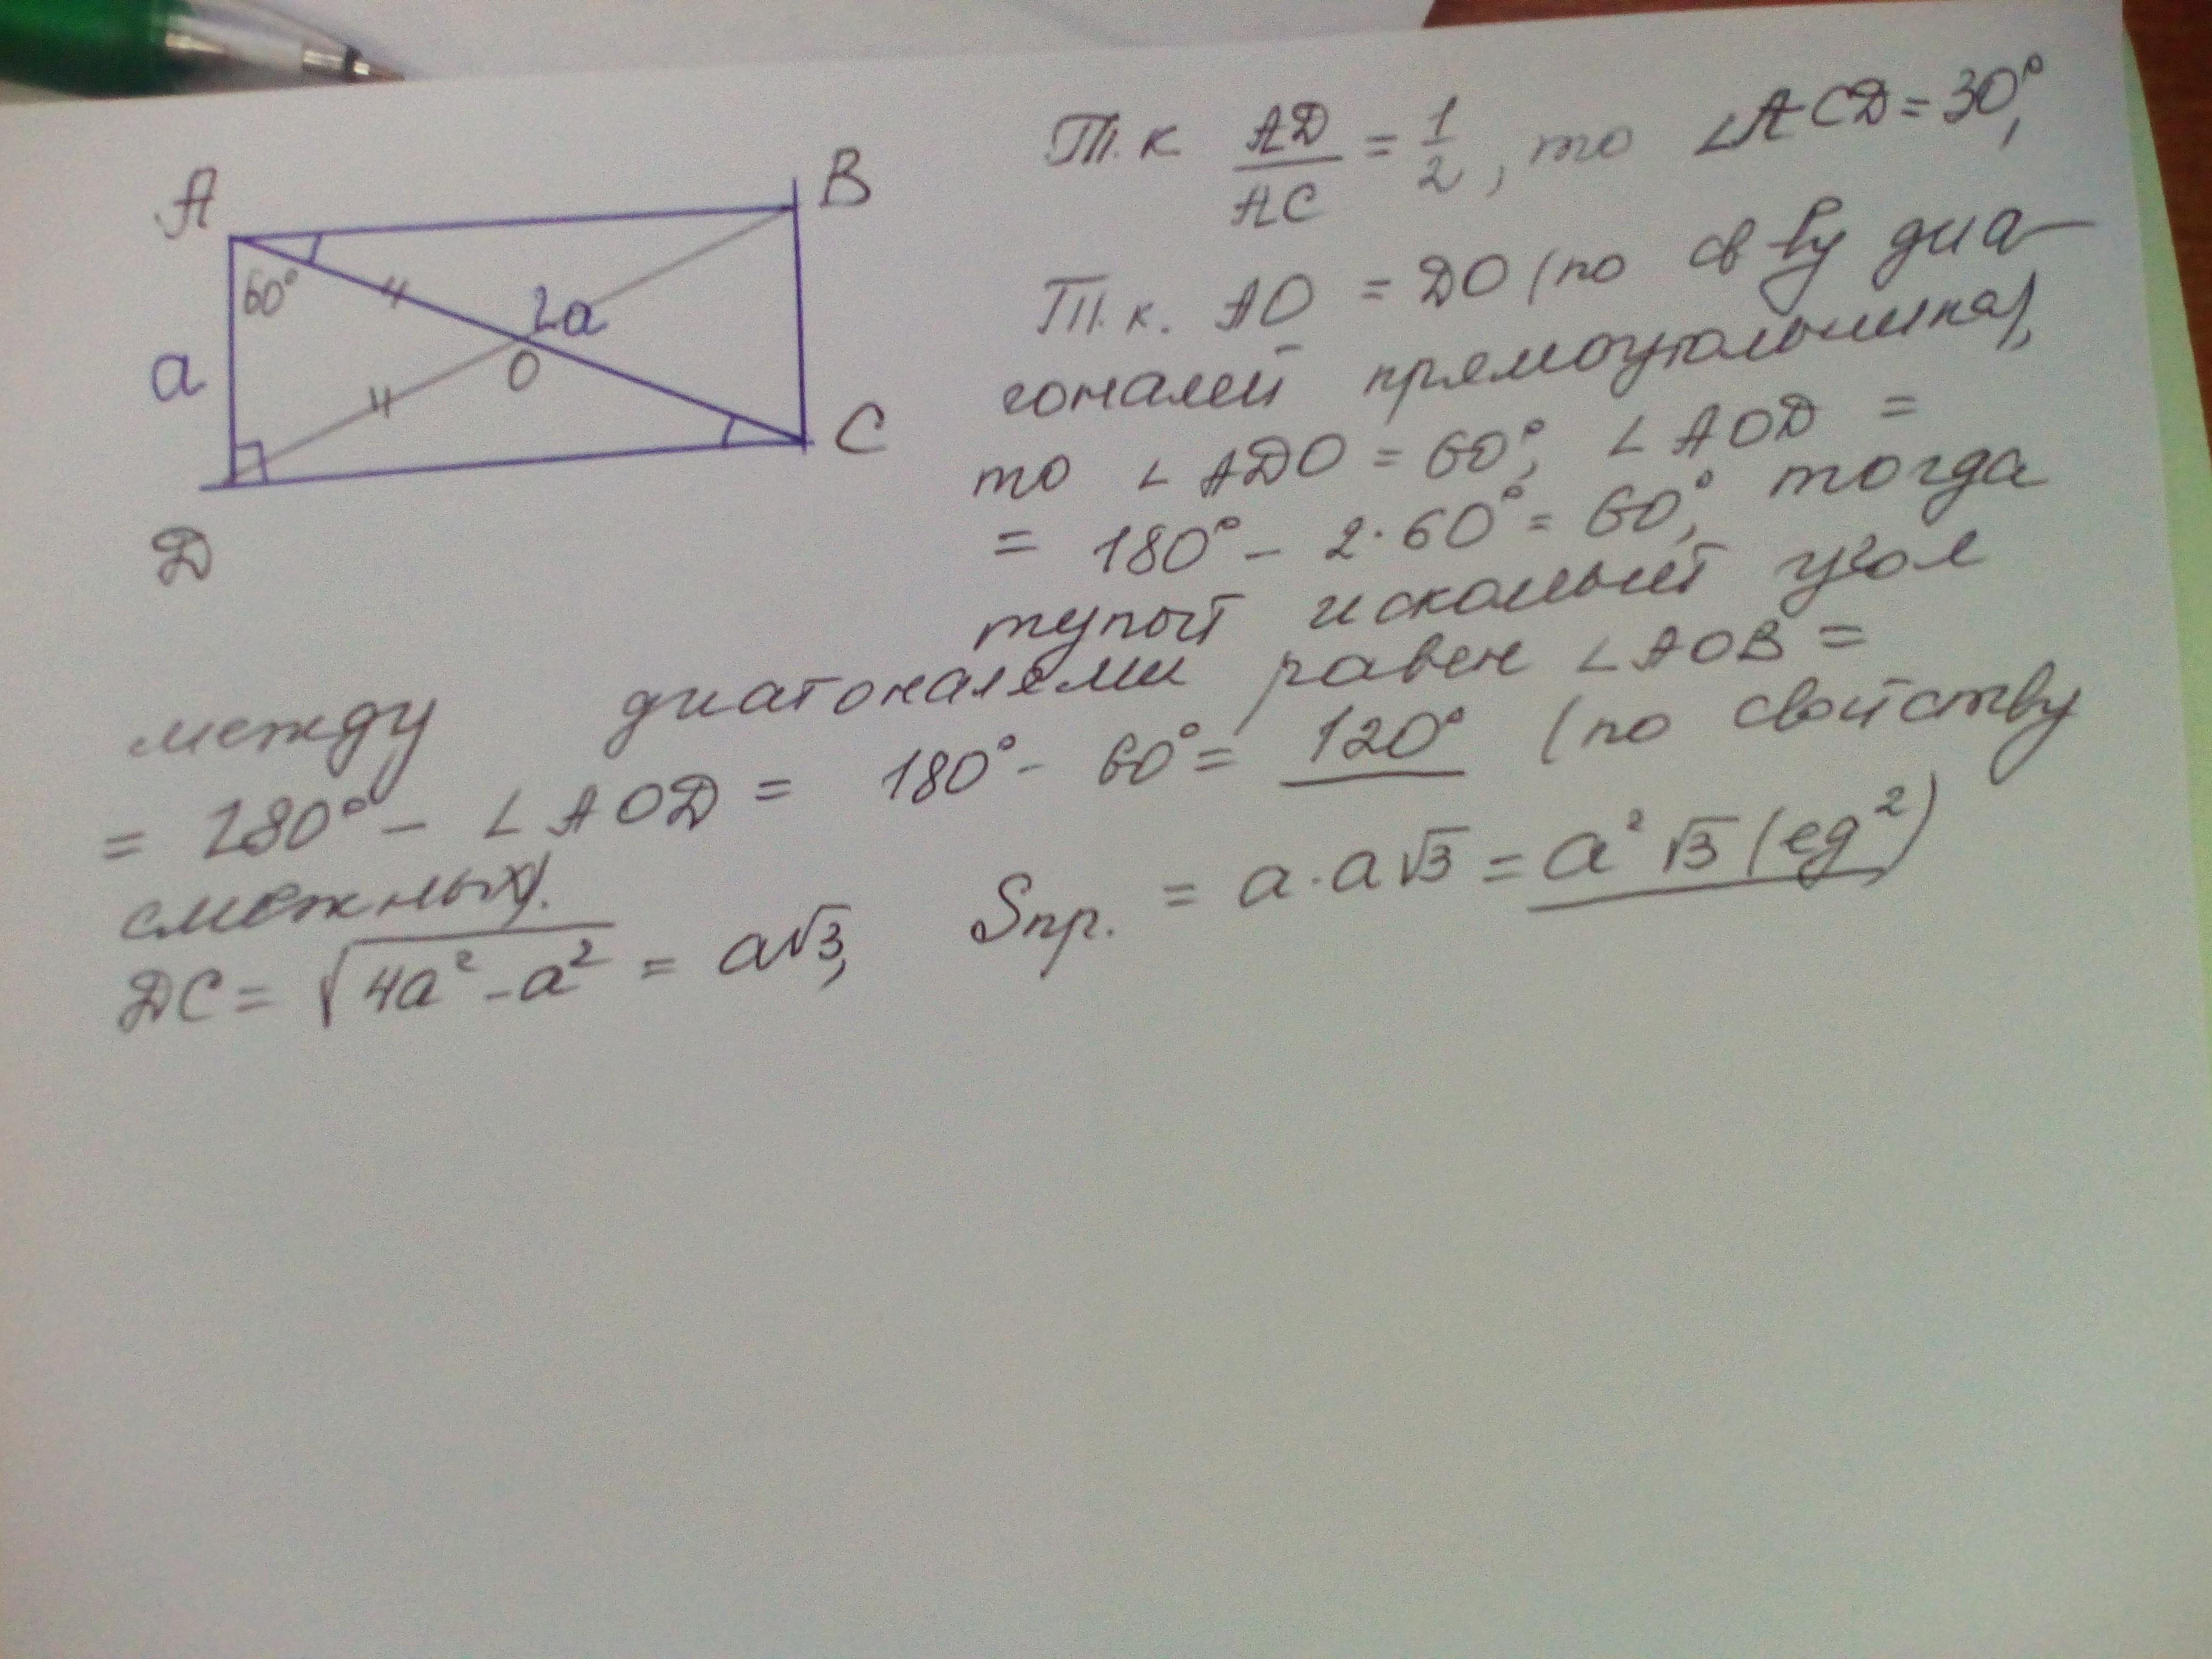 A
B
60°
2a
a
O
C
D
Т.к AD/AC = 1/2, то ∠ACD = 30°,
Т.к. AO = DO (по св-ву диа-
гоналей прямоугольника),
то ∠ADO = 60°, ∠AOD =
= 180° - 2·60° = 60°, тогда
тупой искомый угол
между диагоналями равен ∠AOB =
= 180° - ∠AOD = 180° - 60° = 120° (по свойству
смежных).
DC = √(4a² - a²) = a√3, Sпр. = a·a√3 = a²√3 (ед²)